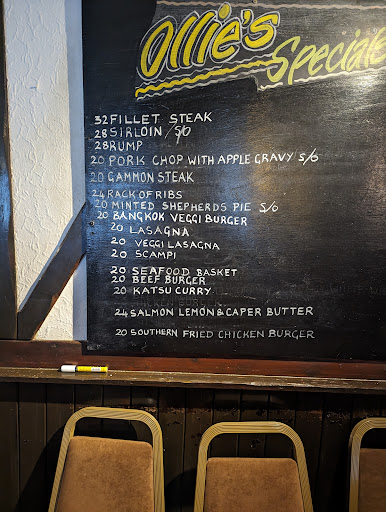 Ollie's
Specials
32 FILLET STEAK
28 SIRLOIN S/O
28 RUMP
20 PORK CHOP WITH APPLE GRAVY S/O
20 GAMMON STEAK
24 RACK OF RIBS
20 MINTED SHEPHERDS PIE S/O
20 BANGKOK VEGGI BURGER
20 LASAGNA
20 VEGGI LASAGNA
20 SCAMPI
20 SEAFOOD BASKET
20 BEEF BURGER
20 KATSU CURRY
24 SALMON LEMON & CAPER BUTTER
20 SOUTHERN FRIED CHICKEN BURGER